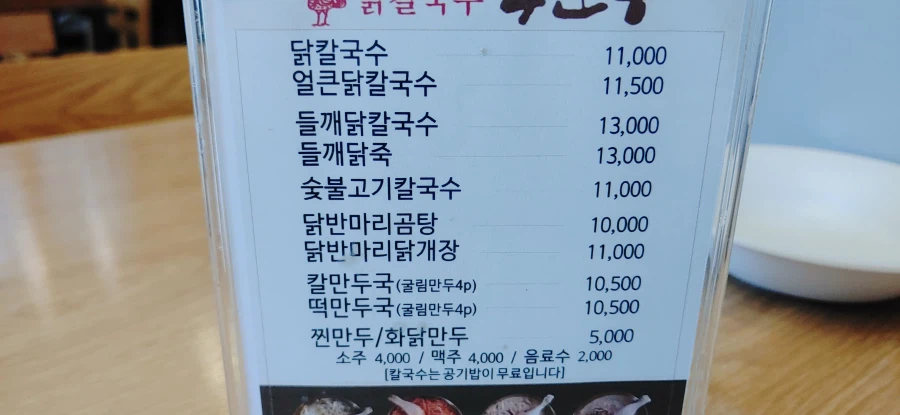 닭칼국수
닭칼국수 11,000
얼큰닭칼국수 11,500
들깨닭칼국수 13,000
들깨닭죽 13,000
숯불고기칼국수 11,000
닭반마리곰탕 10,000
닭반마리닭개장 11,000
칼만두국(굴림만두4p) 10,500
떡만두국(굴림만두4p) 10,500
찐만두/화닭만두 5,000
소주 4,000 / 맥주 4,000 / 음료수 2,000
[칼국수는 공기밥이 무료입니다]